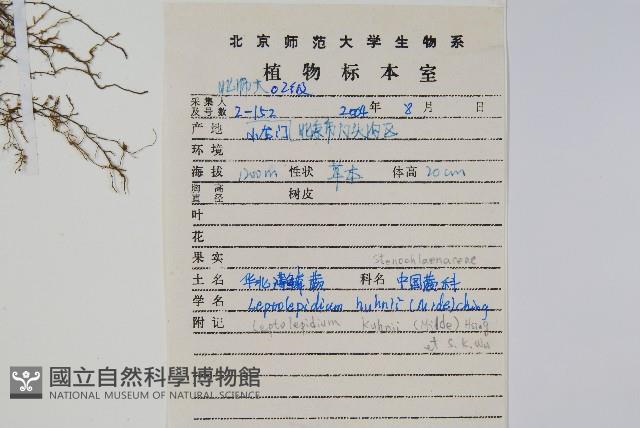 北京师范大学生物系
植物标本室
北师大 02级
采集人及号数 2-152 2004年 8月 日
产地 小龙门 北京市门头沟区
环境
海拔 1200m 性状 草本 体高 20cm
胸高直径 树皮
叶
花
果实 Stenochlaenaceae
土名 华北薄鳞蕨 科名 中国蕨科
学名 Leptolepidium kuhnii (Milde) Ching
附记 Leptolepidium Kuhnii (Milde) Hsing
et S. K. Wu
國立自然科學博物館
NATIONAL MUSEUM OF NATURAL SCIENCE